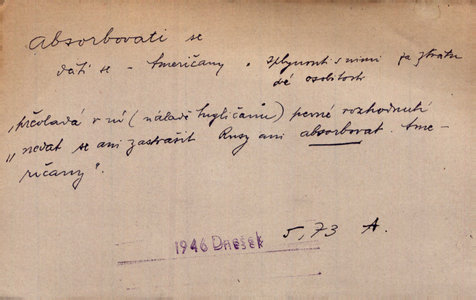 Absorbovati se
dáti se - Američany = splynouti s nimi za ztrátu
své osobitosti
„převládá v ní (náladě Angličanů) pevné rozhodnutí
„nedat se ani zastrašit Rusy ani absorbovat Ame-
ričany“.
1946 Dnešek 5,73 A.